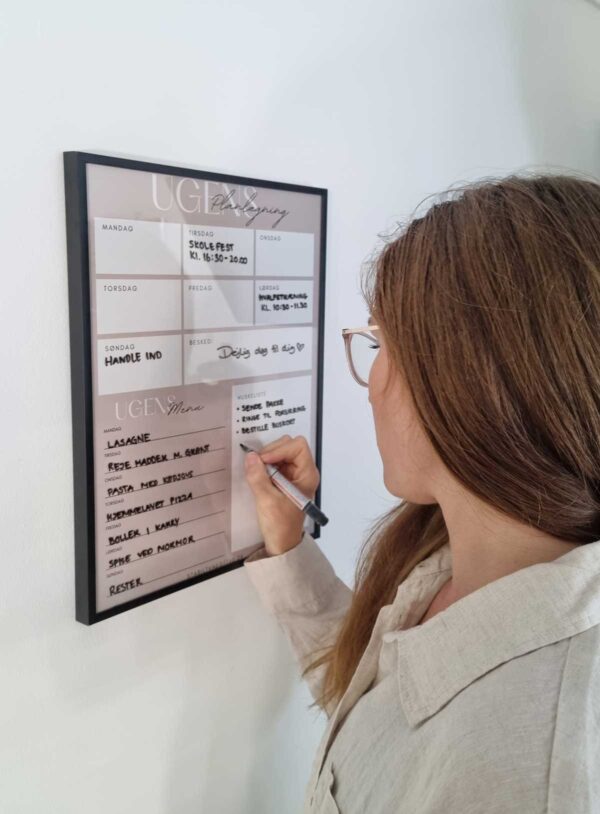 UGENS Planlægning
MANDAG
TIRSDAG
SKOLEFEST
KL. 16:30-20.00
ONSDAG
TORSDAG
FREDAG
LØRDAG
HVALPETRÆNING
KL. 10:30-11.30
SØNDAG
HANDLE IND
BESKED:
Dejlig dag til dig ♡
UGENS Menu
MANDAG
LASAGNE
TIRSDAG
REJE MADDER M. GRØNT
ONSDAG
PASTA MED KØDSOVS
TORSDAG
HJEMMELAVET PIZZA
FREDAG
BOLLER I KARRY
LØRDAG
SPISE VED MORMOR
SØNDAG
RESTER
HUSKELISTE
• SENDE PAKKE
• RINGE TIL FORSIKRING
• BESTILLE BUSKORT